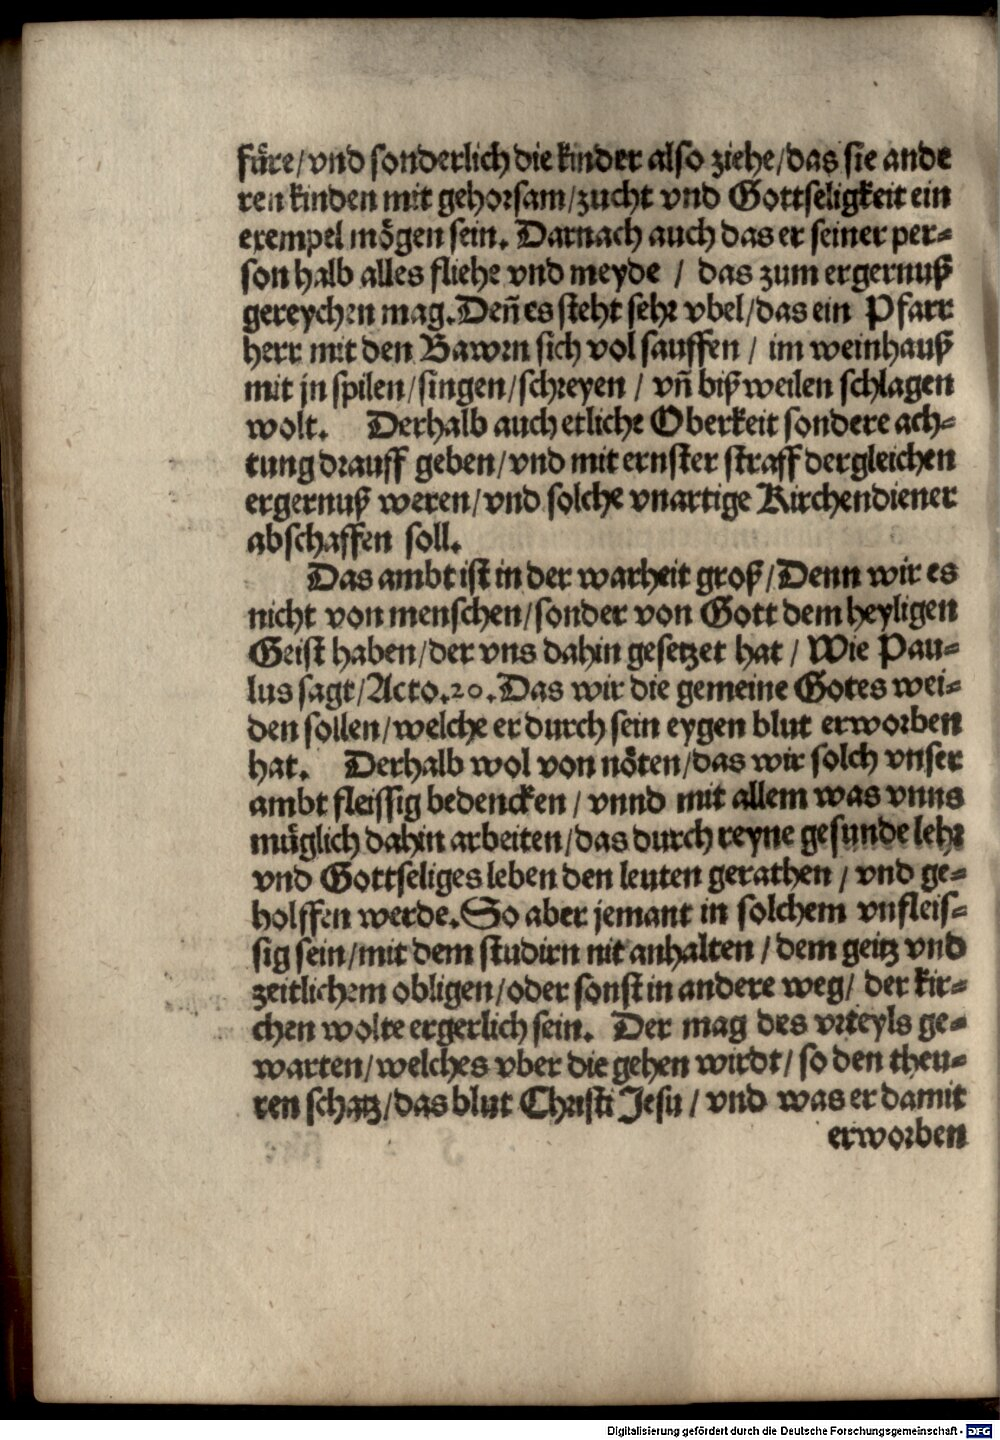 fuͤre/vnd sonderlich die kinder also ziehe/das sie ande
ren kinden mit gehorsam/zucht vnd Gottseligkeit ein
exempel moͤgen sein. Darnach auch das er seiner per-
son halb alles fliehe vnd meyde / das zum ergernuß
gereychen mag. Deñ es steht sehr vbel/das ein Pfarr
herr mit den Bawrn sich vol sauffen / im weinhauß
mit jn spilen/singen/schreyen / vñ bißweilen schlagen
wolt. Derhalb auch etliche Oberkeit sondere ach-
tung drauff geben/vnd mit ernster straff dergleichen
ergernuß weren/vnd solche vnartige Kirchendiener
abschaffen soll.
Das ambt ist in der warheit groß/Denn wir es
nicht von menschen/sonder von Gott dem heyligen
Geist haben/der vns dahin gesetzet hat / Wie Pau-
lus sagt/Acto.20. Das wir die gemeine Gotes wei-
den sollen/welche er durch sein eygen blut erworben
hat. Derhalb wol von noͤten/das wir solch vnser
ambt fleissig bedencken / vnnd mit allem was vnns
muͤglich dahin arbeiten/das durch reyne gesunde lehr
vnd Gottseliges leben den leuten gerathen / vnd ge-
holffen werde. So aber jemant in solchem vnfleis-
sig sein/mit dem studirn nit anhalten / dem geitz vnd
zeitlichem obligen/oder sonst in andere weg/ der kir-
chen wolte ergerlich sein. Der mag des vrteyls ge-
warten/welches vber die gehen wirdt/ so den theu-
ren schatz/das blut Christi Jesu / vnd was er damit
erworben
Digitalisierung gefördert durch die Deutsche Forschungsgemeinschaft - DFG